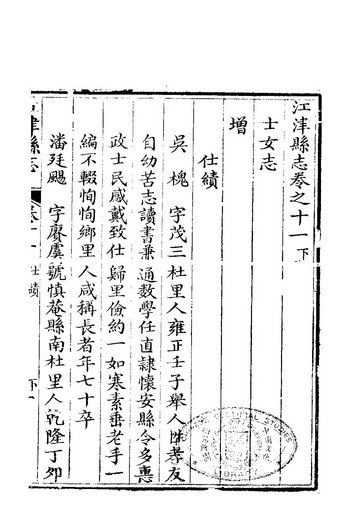 江津縣志卷之十一下
士女志
增
仕績
吳槐字茂三杜里人雍正壬子舉人性孝友
自幼苦志讀書兼通數學任直隸懷安縣令多惠
政士民感戴致仕歸里儉約一如寒素垂老手一
編不輟恂恂鄉里人咸稱長者年七十卒
潘廷颺字賡虞號慎菴縣南杜里人乾隆丁卯
津縣志
仕績
下